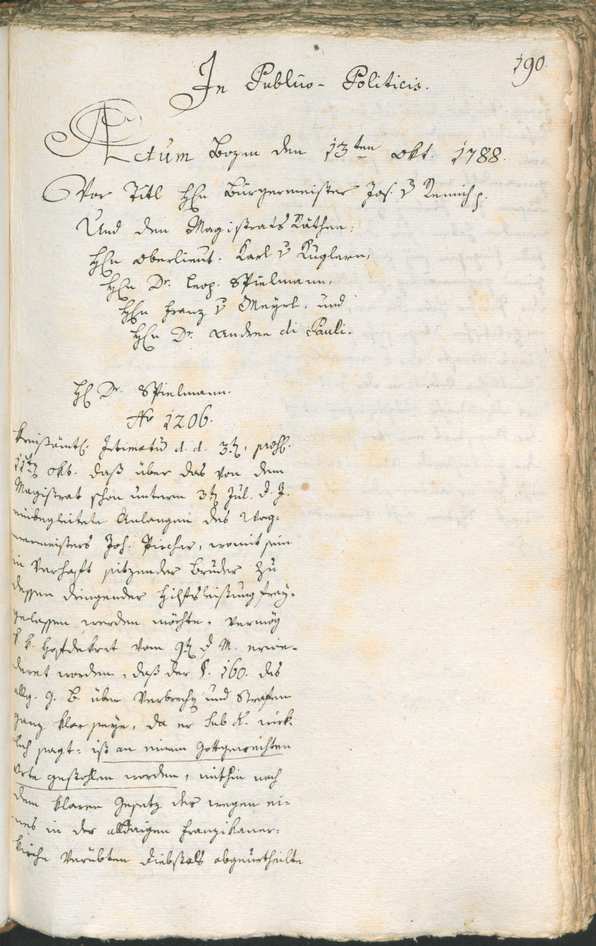 190.
In Publico-Politicis.
Actum Bozen den 13ten Okt. 1788.
Vor Titl Hhn Bürgermeister Jos. v Remich p.
Und den Magistrats Räthen:
Hhn Oberlieut. Karl v Kuglern,
Hhn Dr. Leop. Spielmann,
Hhn Franz v Mayrl, und
Hhn Dr. Andree di Pauli.
Hh Dr. Spielmann.
No 1206.
Kreisämtl. Intimatum d. d. 3t, präs.
11t Okt. daß über das von dem
Magistrat schon unterm 3t Jul. d. J.
einbegleitete Anlangen des Wag-
nermeisters Joh. Pircher, womit sein
in Verhaft sitzender Bruder zu
dessen dringender Hilfsleistung frey-
gelassen werden möchte, vermög
k. k. Hofdekret vom 9t d. M. erwie-
deret worden, daß der §. 160. des
allg. G. B. über Verbrechen und Strafen
ganz klar seye, da er sub d. wirk-
lich sagt: ist an einem Gottgeweichten
Orte gestohlen worden, mithin nach
dem klaren Gesetz der wegen ei-
nes in der alldaigen Franziskaner-
kirche verübten Diebstals abgeurtheilte